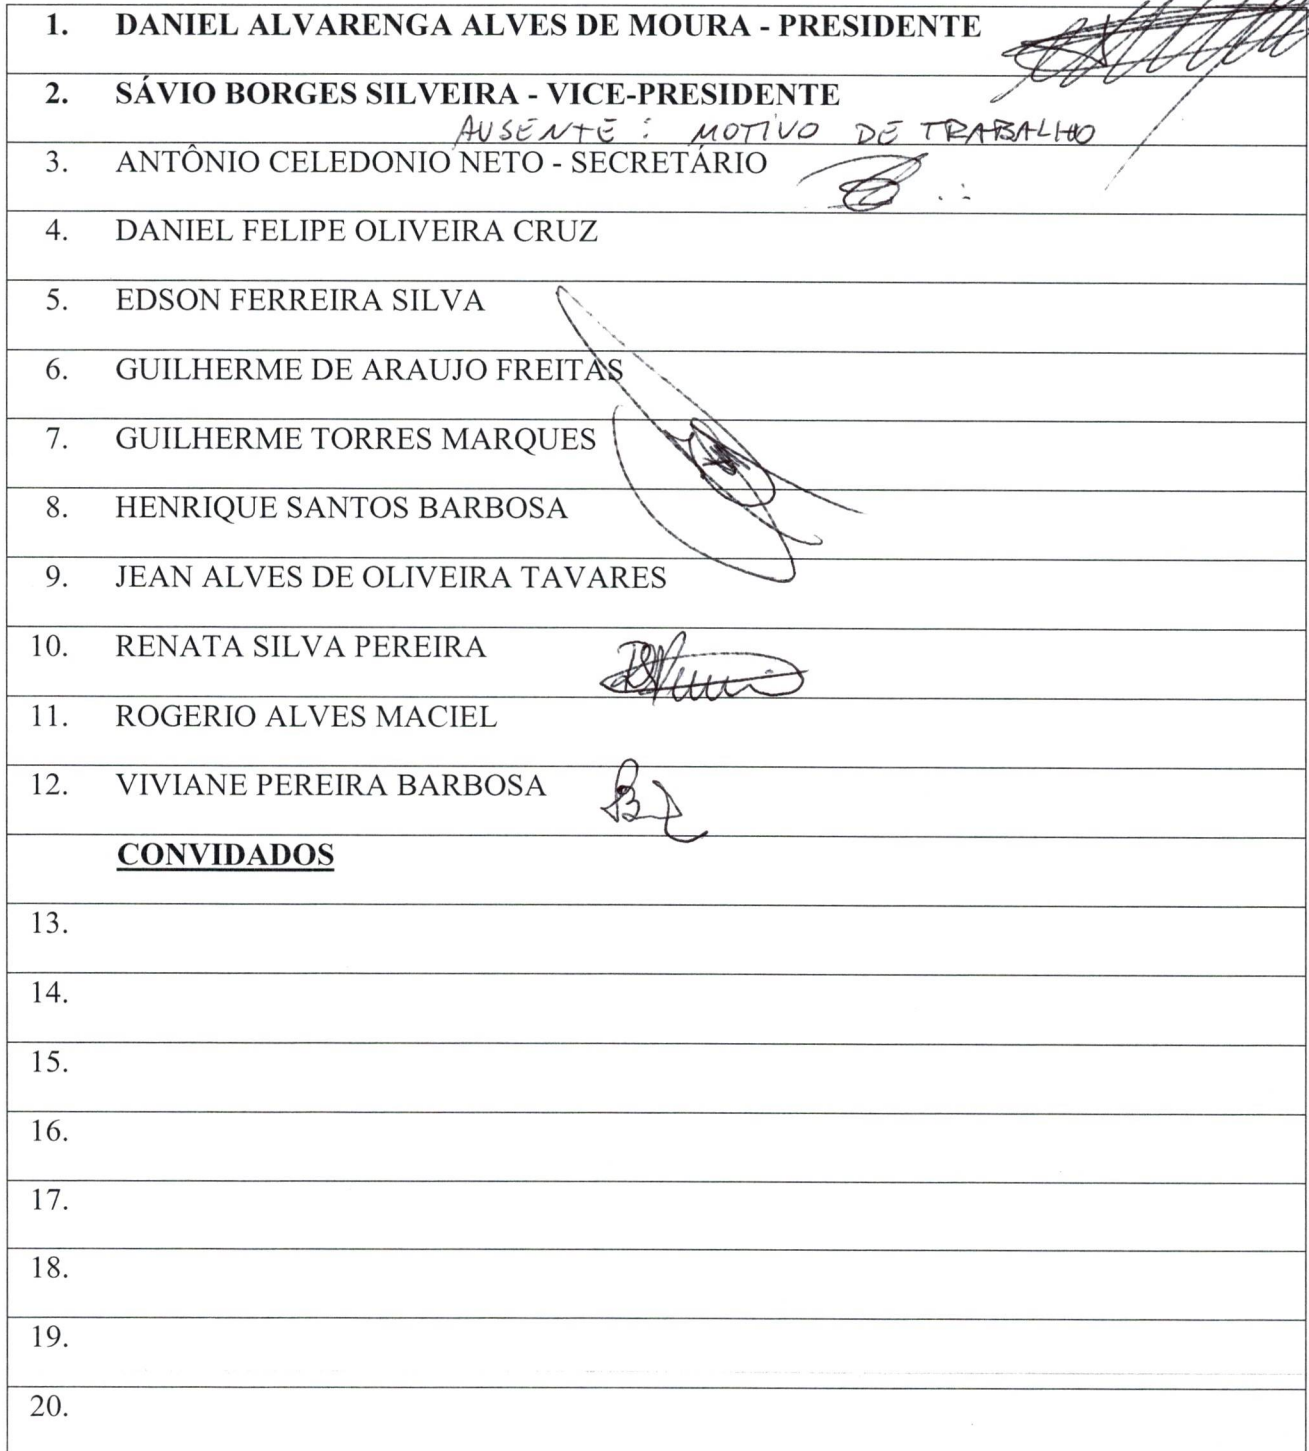 1. DANIEL ALVARENGA ALVES DE MOURA - PRESIDENTE
2. SÁVIO BORGES SILVEIRA - VICE-PRESIDENTE
AUSENTE : MOTIVO DE TRABALHO
3. ANTÔNIO CELEDONIO NETO - SECRETÁRIO
4. DANIEL FELIPE OLIVEIRA CRUZ
5. EDSON FERREIRA SILVA
6. GUILHERME DE ARAUJO FREITAS
7. GUILHERME TORRES MARQUES
8. HENRIQUE SANTOS BARBOSA
9. JEAN ALVES DE OLIVEIRA TAVARES
10. RENATA SILVA PEREIRA
11. ROGERIO ALVES MACIEL
12. VIVIANE PEREIRA BARBOSA
CONVIDADOS
13.
14.
15.
16.
17.
18.
19.
20.